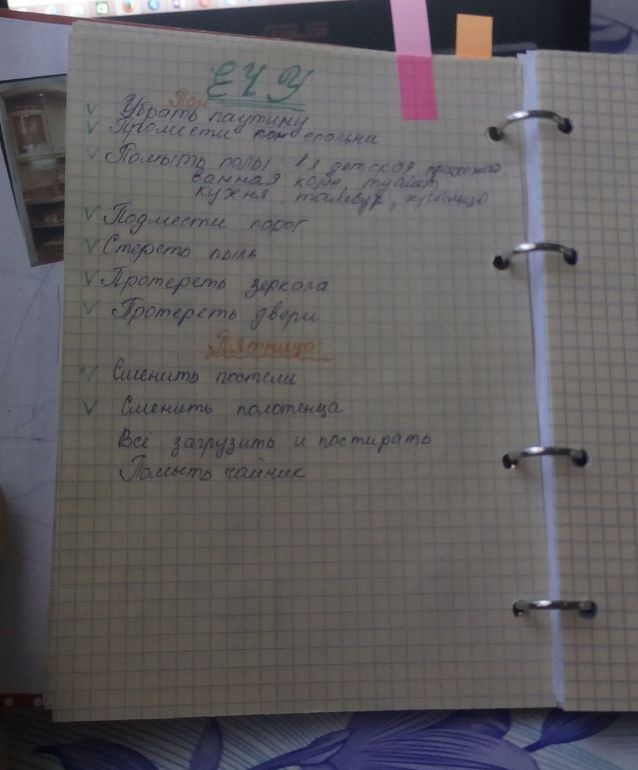 ASUS
ЕЧУ
Пон
Убрать паутину
Промести ком спальни
Помыть полы: 2я детская, прихожая
ванная комн, туалет
кухня, тамбур, лестница
Подмести порог
Стереть пыль
Протереть зеркала
Протереть двери
Пятница
Сменить постели
Сменить полотенца
Всё загрузить и постирать
Помыть чайник